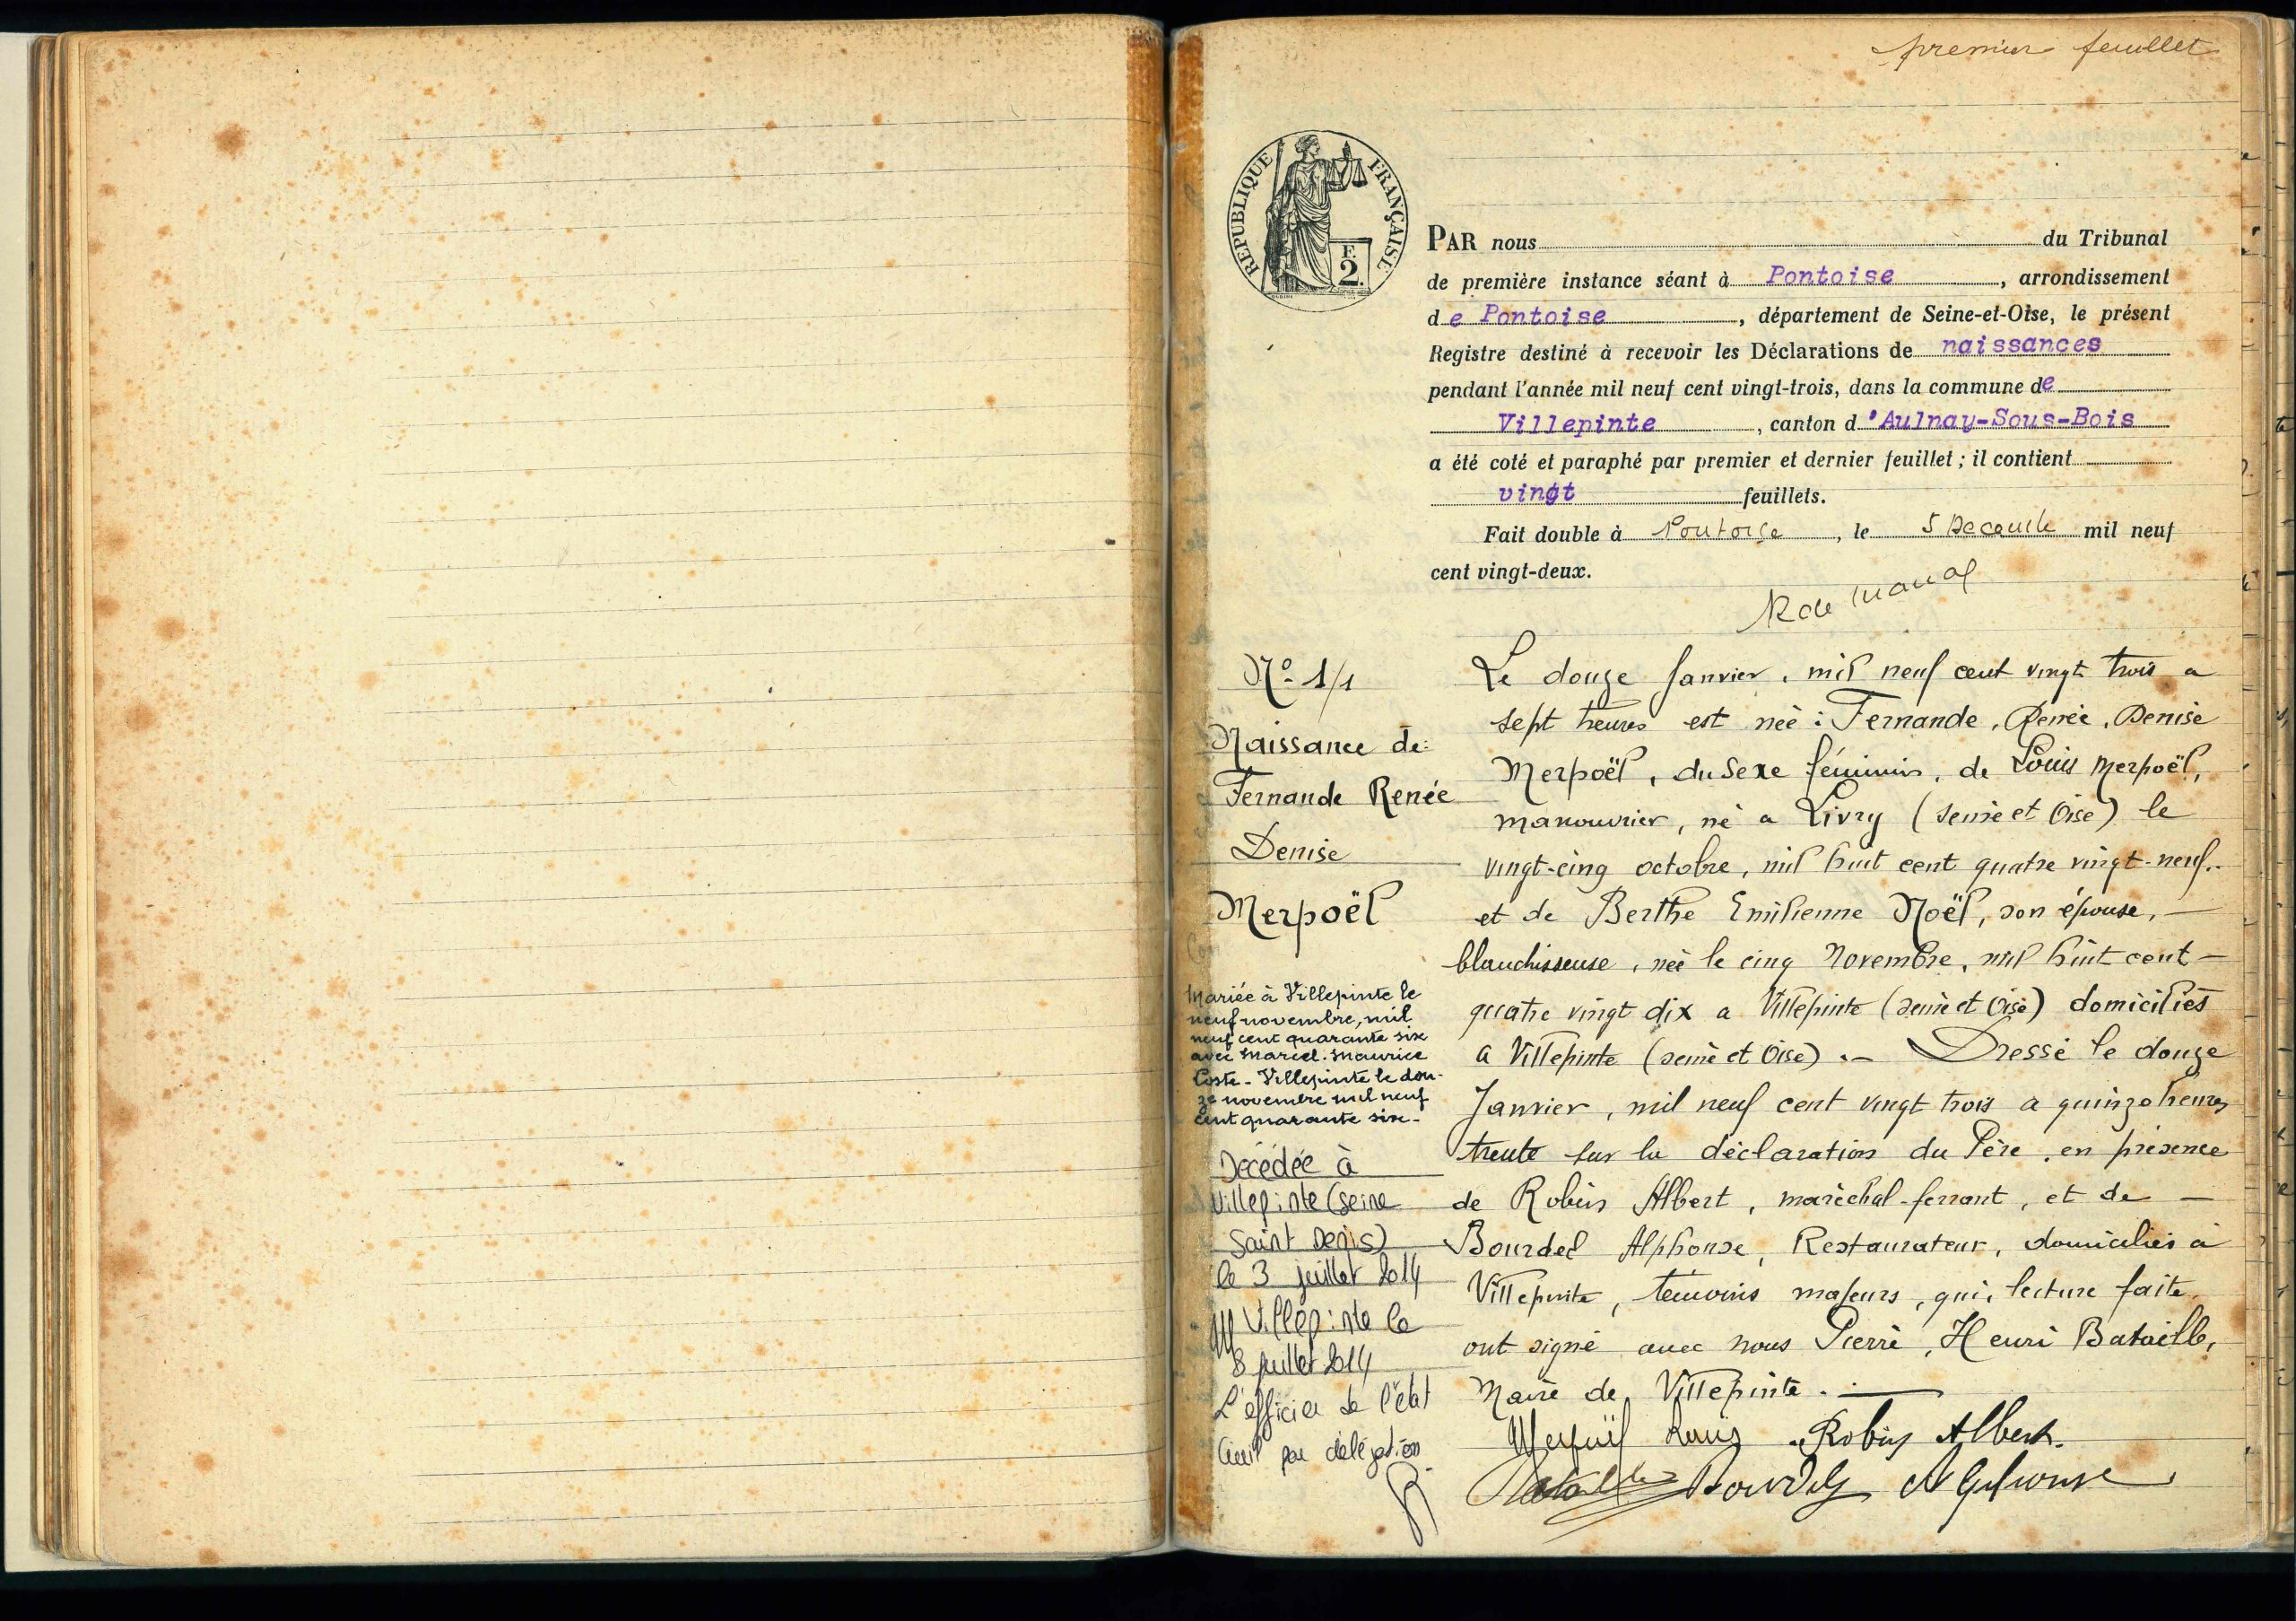 premier feuillet
RÉPUBLIQUE FRANÇAISE
F.
2.
PAR nous du Tribunal
de première instance séant à Pontoise, arrondissement
de Pontoise, département de Seine-et-Oise, le présent
Registre destiné à recevoir les Déclarations de naissances
pendant l'année mil neuf cent vingt-trois, dans la commune de
Villepinte, canton d'Aulnay-Sous-Bois
a été coté et paraphé par premier et dernier feuillet ; il contient
vingt feuillets.
Fait double à Pontoise, le 5 Decembre mil neuf
cent vingt-deux.
Nº 1/1
Naissance de:
Fernande Renée
Denise
Merpoël
Mariée à Villepinte le
neuf novembre, mil
neuf cent quarante six
avec Marcel. Maurice
Coste - Villepinte le dou-
ze novembre mil neuf
cent quarante six -
Décédée à
Villepinte (Seine
Saint Denis)
le 3 juillet 2014
Villepinte le
8 juillet 2014
L'officier de l'état
Civil par délégation
Le douze Janvier, mil neuf cent vingt trois a
sept heures est née : Fernande, Renée, Denise
Merpoël, du sexe féminin, de Louis Merpoël,
manouvrier, né a Livry (Seine et Oise) le
vingt-cinq octobre, mil huit cent quatre vingt-neuf.
et de Berthe Emilienne Noël, son épouse, —
blanchisseuse, née le cinq Novembre, mil huit cent —
quatre vingt dix a Villepinte (Seine et Oise) domiciliés
a Villepinte (Seine et Oise) .— Dressé le douze
Janvier, mil neuf cent vingt trois a quinze heures
trente sur la déclaration du Père, en présence
de Robin Albert, maréchal-ferrant, et de —
Bourdel Alphonse, Restaurateur, domiciliés à
Villepinte, témoins majeurs, qui, lecture faite,
ont signé avec nous Pierre, Henri Bataille,
Maire de Villepinte. —
Merpoël Louis Robin Albert.
Bataille Bourdel Alphonse